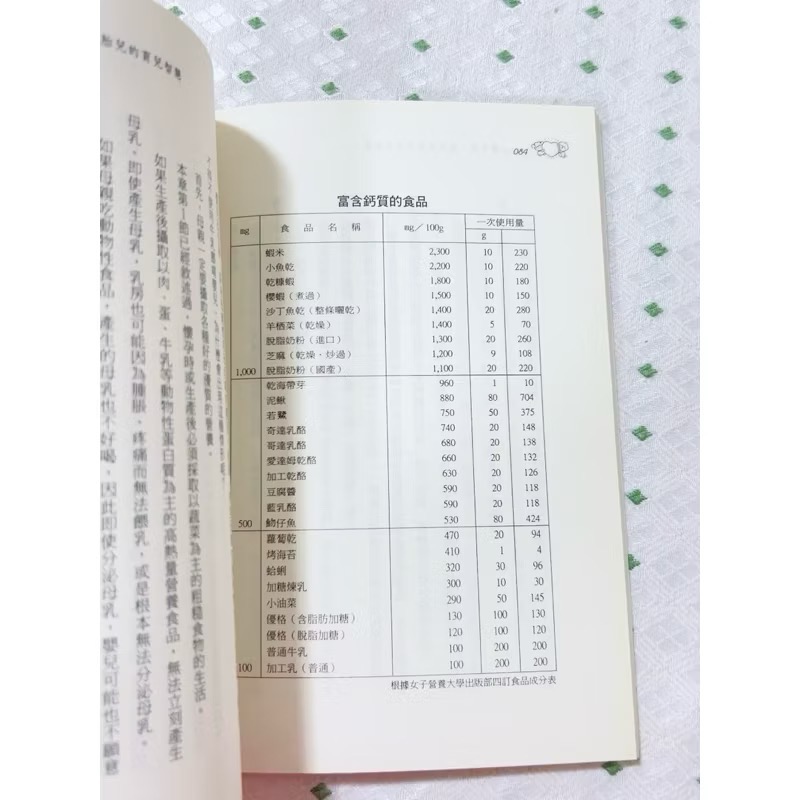 084
富含鈣質的食品
mg 食品名稱 mg／100g 一次使用量
g
蝦米 2,300 10 230
小魚乾 2,200 10 220
乾糠蝦 1,800 10 180
櫻蝦（煮過） 1,500 10 150
沙丁魚乾（整條曬乾） 1,400 20 280
羊栖菜（乾燥） 1,400 5 70
脫脂奶粉（進口） 1,300 20 260
芝麻（乾燥・炒過） 1,200 9 108
1,000 脫脂奶粉（國產） 1,100 20 220
乾海帶芽 960 1 10
泥鰍 880 80 704
若鷺 750 50 375
奇達乳酪 740 20 148
哥達乳酪 680 20 138
愛達姆乾酪 660 20 132
加工乾酪 630 20 126
豆腐醬 590 20 118
藍乳酪 590 20 118
500 魩仔魚 530 80 424
蘿蔔乾 470 20 94
烤海苔 410 1 4
蛤蜊 320 30 96
加糖煉乳 300 10 30
小油菜 290 50 145
優格（含脂肪加糖） 130 100 130
優格（脫脂加糖） 120 100 100
普通牛乳 100 200 200
100 加工乳（普通） 100 200 200
根據女子營養大學出版部四訂食品成分表
胎兒的育兒智慧
首先，母親一定要攝取各種好的優質的營養。
本章第1節已經敘述過，懷孕時或生產後必須採取以蔬菜為主的粗糙食物的生活。
如果生產後攝取以肉、蛋、牛乳等動物性蛋白質為主的高熱量營養食品，無法立刻產生
母乳。即使產生母乳，乳房也可能因為腫脹、疼痛而無法餵乳，或是根本無法分泌母乳。
如果母親吃動物性食品，產生的母乳也不好喝，因此即使分泌母乳，嬰兒可能也不願意